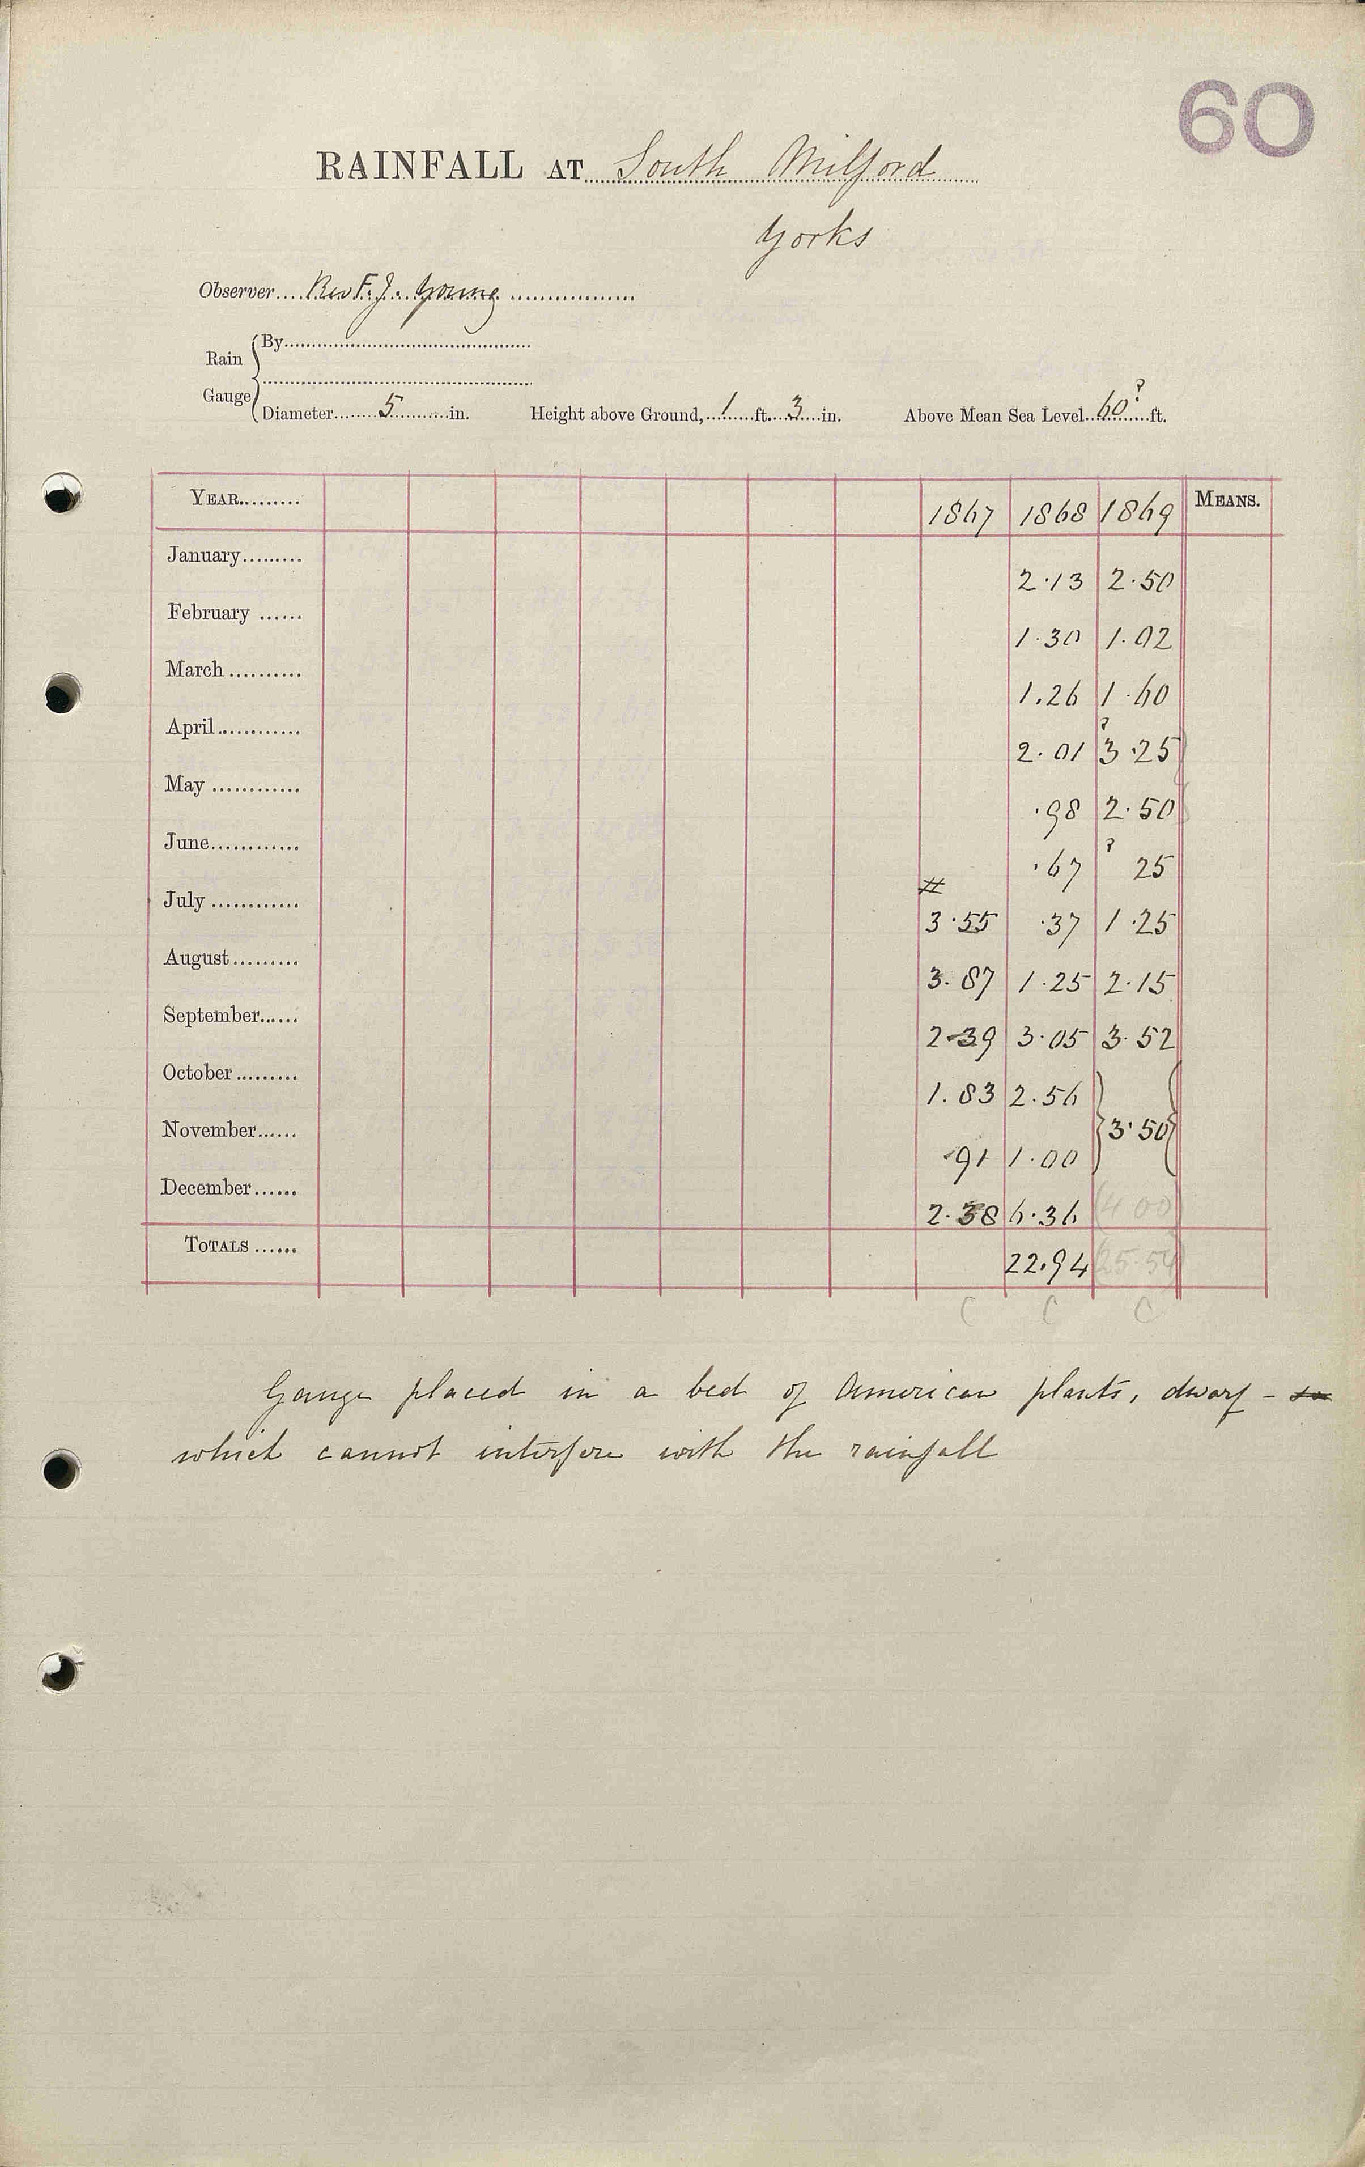 60
RAINFALL AT South Milford
Yorks
Observer Rev F. J. Young
Rain Gauge
By
Diameter 5 in. Height above Ground, 1 ft. 3 in. Above Mean Sea Level 60? ft.
YEAR 1867 1868 1869 MEANS.
January 2.13 2.50
February 1.30 1.02
March 1.26 1.60
April 2.01 ? 3.25
May .98 2.50
June .67 ? 25
July # 3.55 .37 1.25
August 3.87 1.25 2.15
September 2.39 3.05 3.52
October 1.83 2.56
3.50
November .91 1.00
December 2.38 6.36 (4.00)
TOTALS 22.94 (25.54)
C C C
Gauge placed in a bed of American plants, dwarf -
which cannot interfere with the rainfall